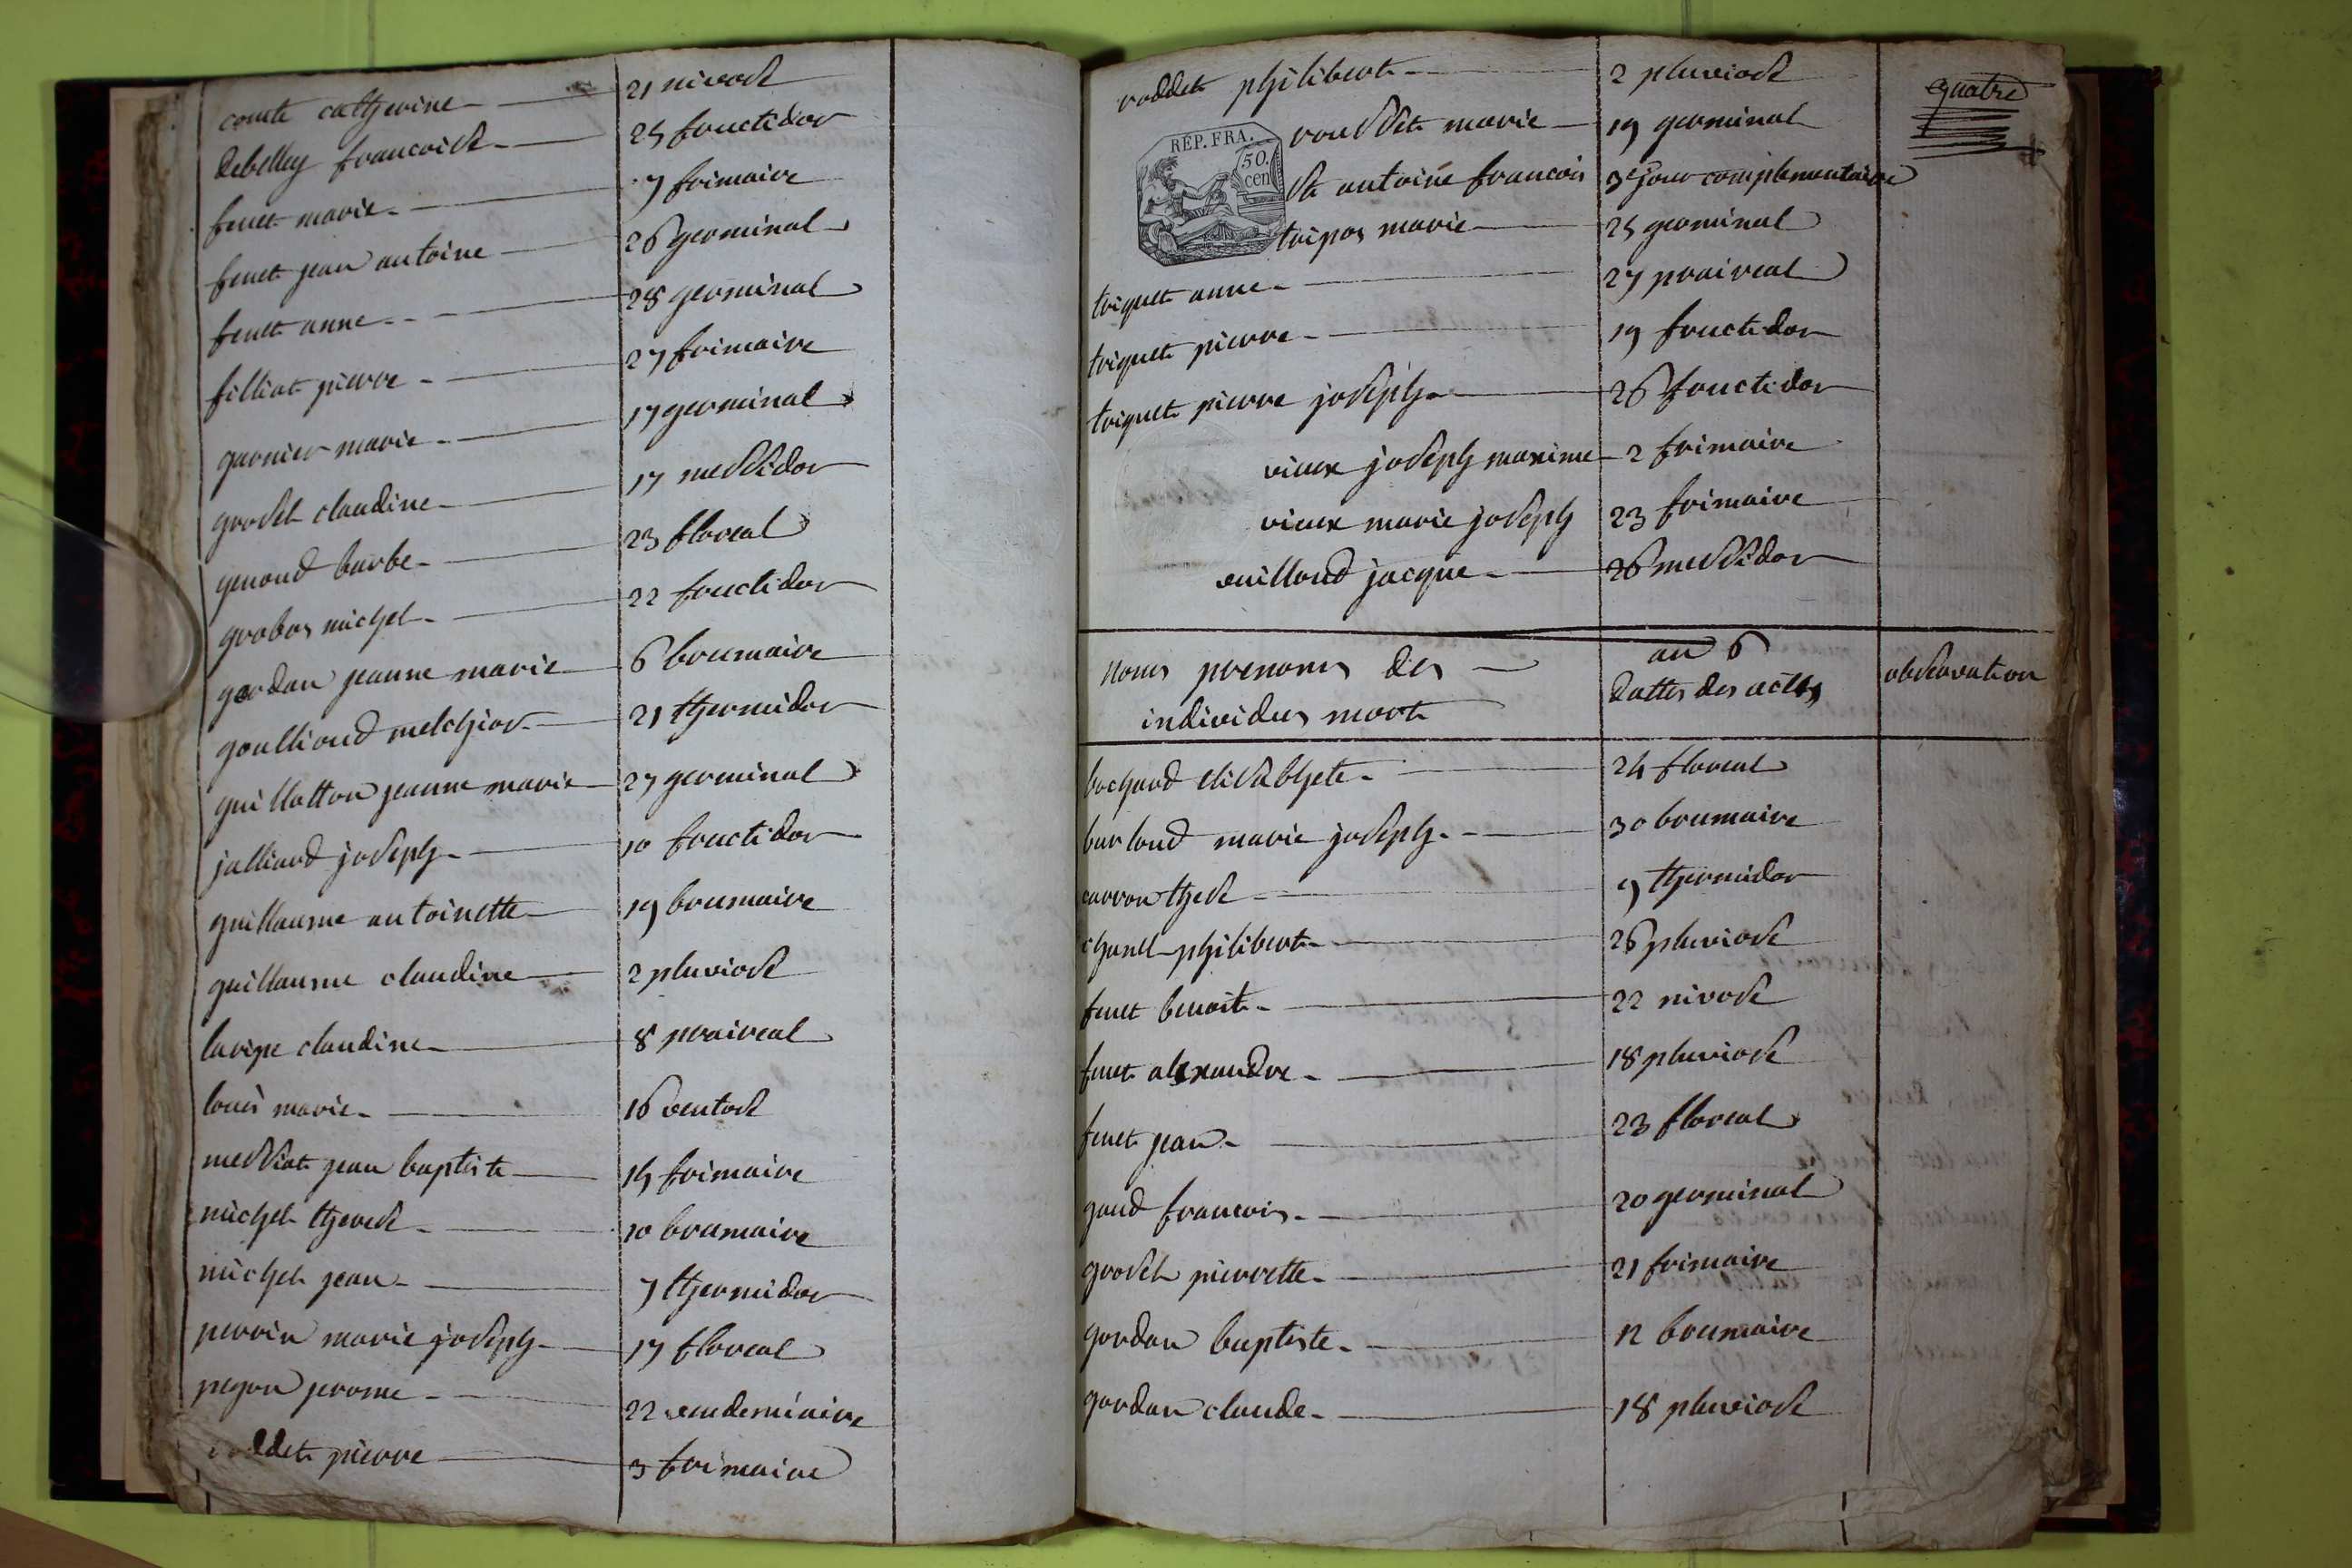 comte catherine 21 nivose
debelley francoise 25 fructidor
fenet marie 7 frimaire
fenet jean antoine 26 germinal
fenet anne 28 germinal
filliat pierre 27 frimaire
garnier marie 17 germinal
grosset claudine 17 messidor
genoud barbe 23 floreal
grobos michel 22 fructidor
gordan jeanne marie 6 brumaire
goullioud melchior 21 thermidor
guillotton jeanne marie 27 germinal
jalliard joseph 10 fructidor
guillaume antoinette 19 brumaire
guillaume claudine 2 pluviose
laripe claudine 8 praireal
marie 16 ventose
messiat jean baptiste 14 frimaire
michel therese 10 brumaire
michel jean 7 thermidor
perrin marie joseph 17 floreal
pegon jerome 22 vendemiaire
roddet pierre 3 frimaire
roddet philibert 2 pluviose
quatre
RÉP. FRA.
50.
cen
rousset marie 19 germinal
antoine francois 3e jour complementaire
tripos marie 25 germinal
triquet anne 27 praireal
triquet pierre 19 fructidor
triquet pierre joseph 26 fructidor
vieux joseph maxime 2 frimaire
vieux marie joseph 23 frimaire
vuilloud jacque 26 messidor
an 6
noms prenoms des
individus mort
dattes des actes
observation
bochard elisabhete 24 floreal
burloud marie joseph 30 brumaire
carron these 9 thermidor
chanel philibert 26 pluviose
fenet benoit 22 nivose
fenet alexandre 18 pluviose
fenet jean 23 floreal
goud francois 20 germinal
grosset pierrette 21 frimaire
gordan baptiste 12 brumaire
gordan claude 18 pluviose